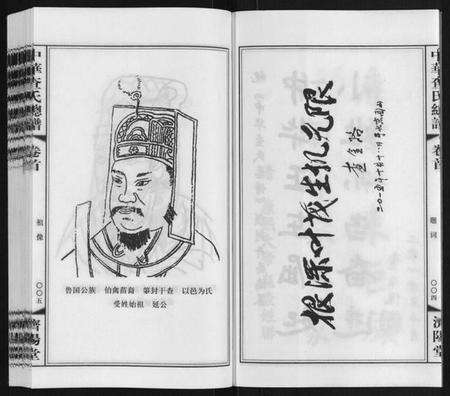 中華查氏總譜
卷首
題詞
〇〇四
濟陽堂
根深叶茂生机无限
查全培
中華查氏總譜
卷首
祖像
〇〇五
濟陽堂
鲁国公族 伯禽苗裔 第封于查 以邑为氏
受姓始祖 延公